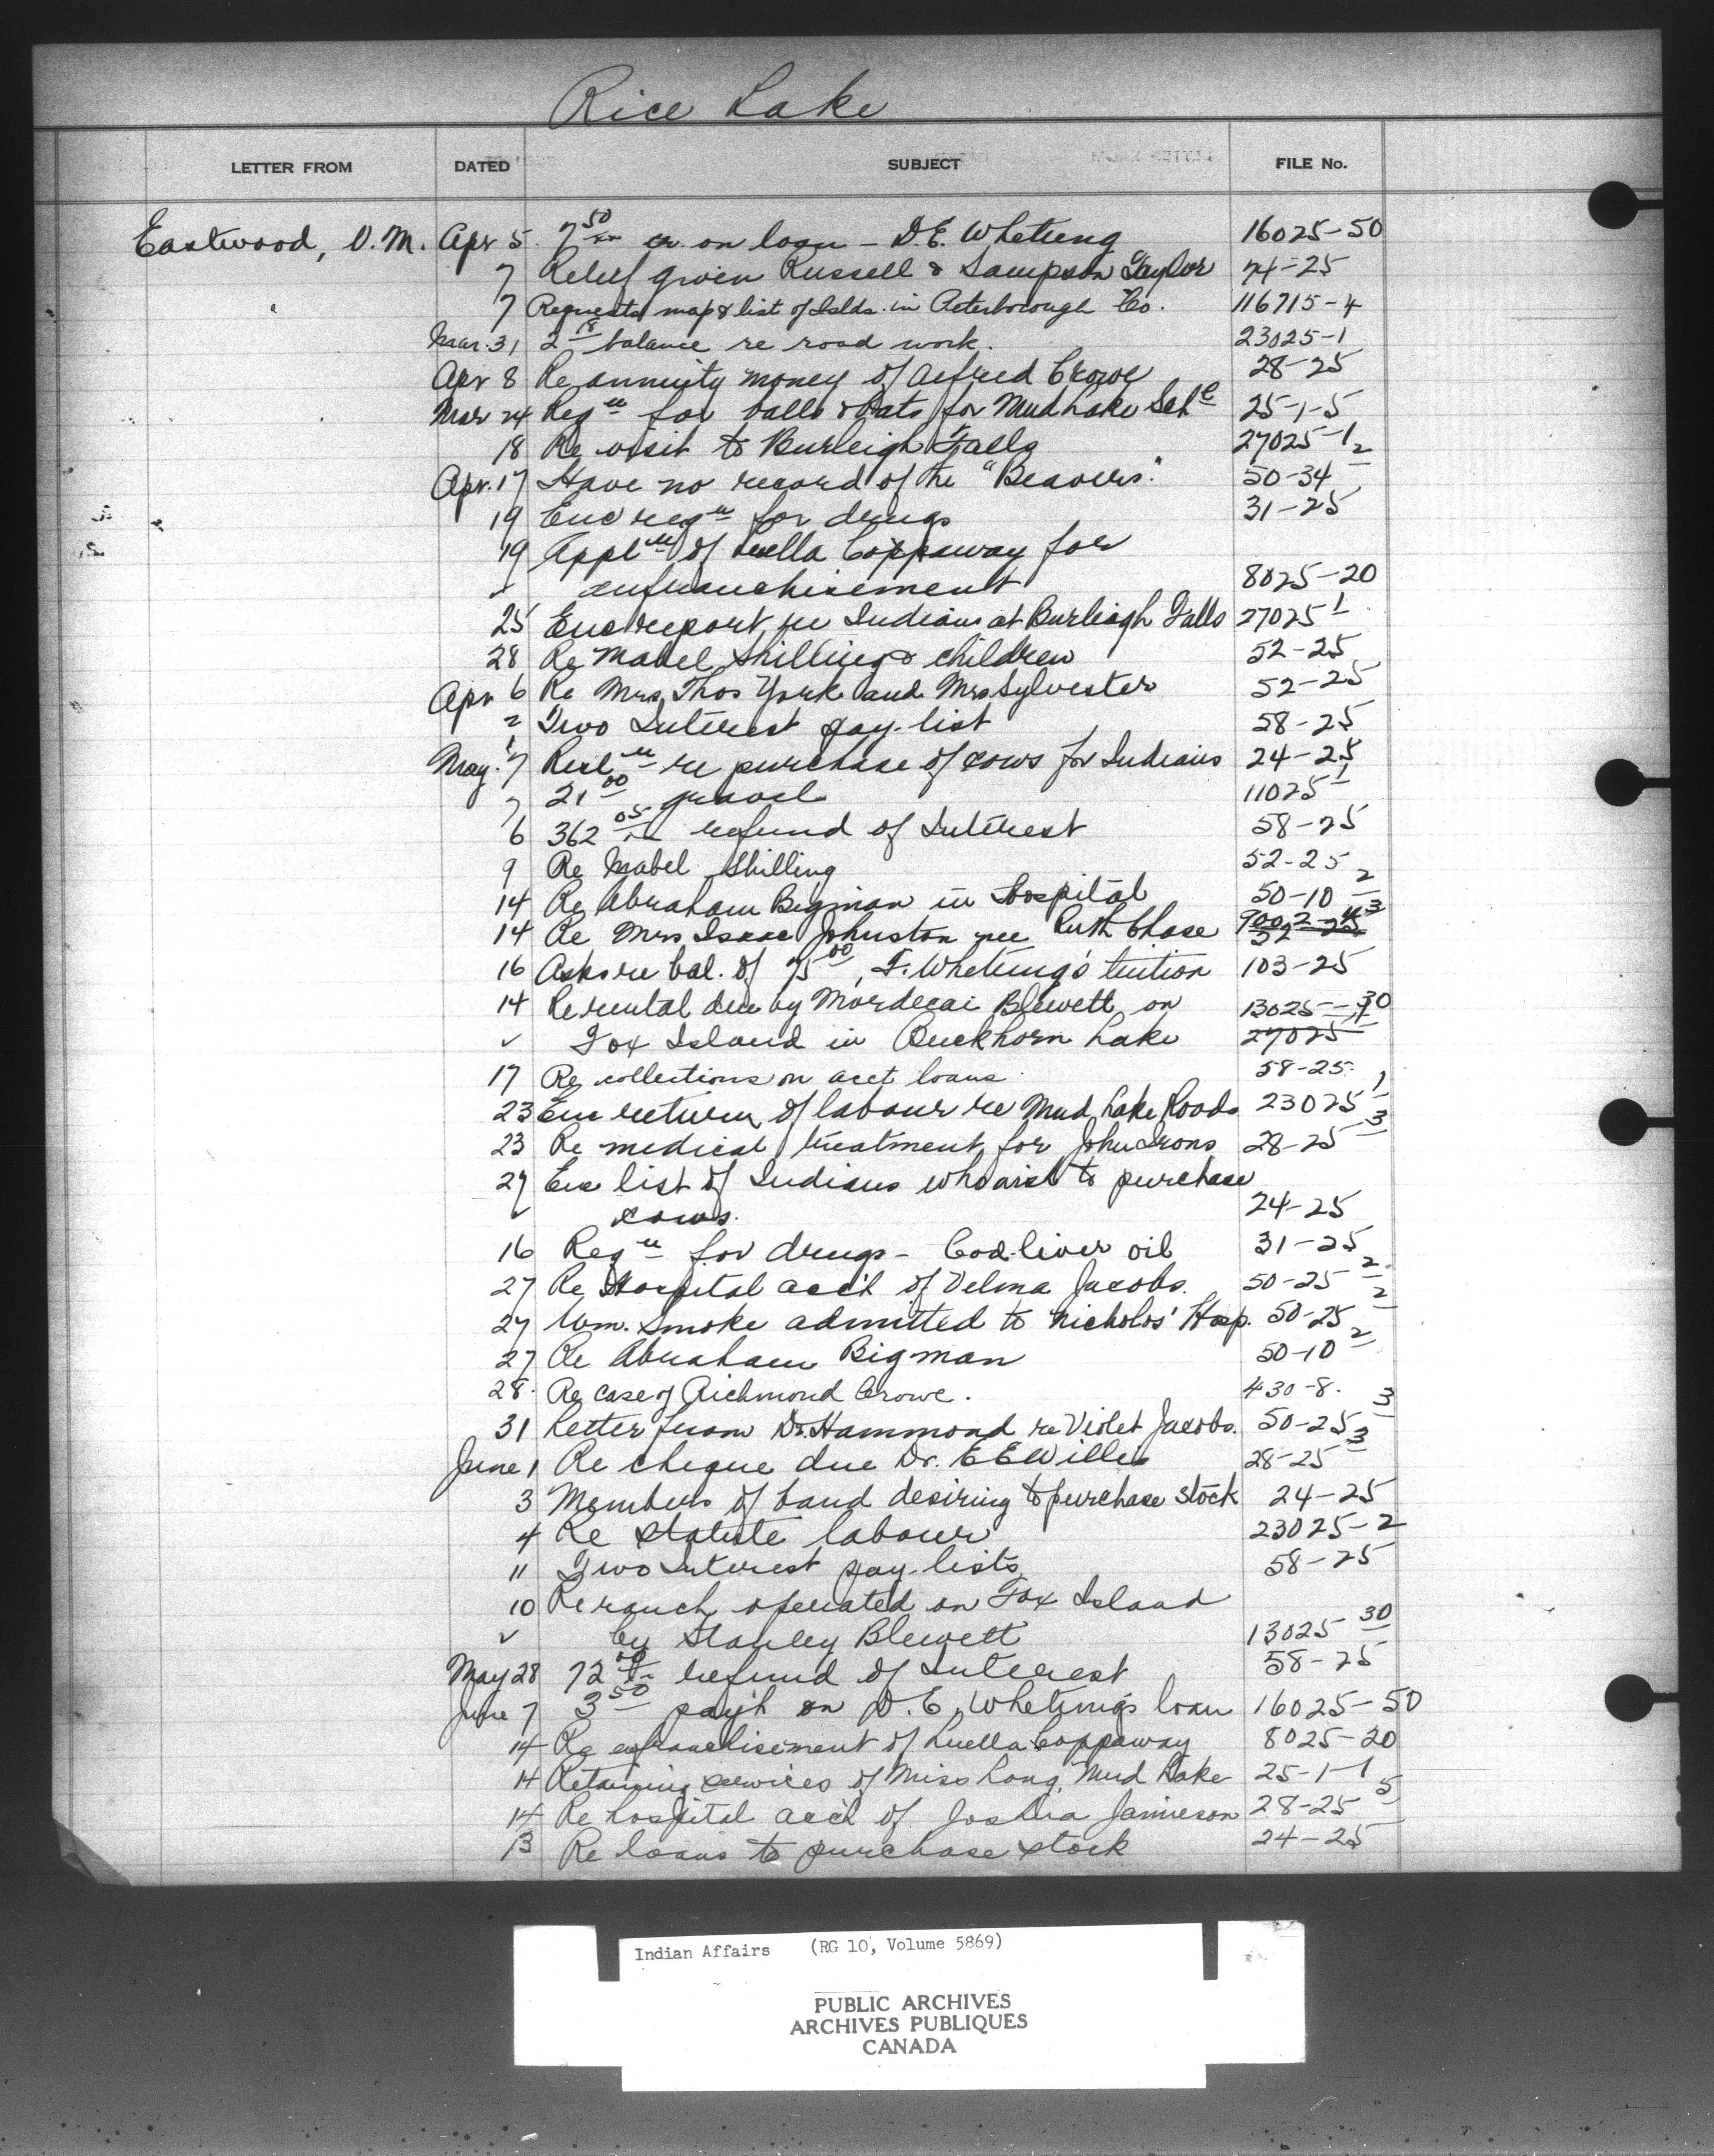 Rice Lake
LETTER FROM DATED SUBJECT FILE No.
Eastwood, V.M. Apr 5 7 50 cr. on loan - D.E. Whetung 16025-50
7 Relief given Russell & Sampson Taylor 74-25
7 Requests map & list of Islds. in Peterborough Co. 116715-4
Mar. 31 2 18 balance re road work. 23025-1
Apr 8 Re annuity money of Alfred Crowe 28-25
Mar 24 Reqn for balls & bats for Mud Lake Schl 25-1-5
18 Re visit to Burleigh Falls 27025-1
Apr. 17 Have no record of the "Beavers". 50-34 2
19 Enc reqn for drugs 31-25
19 Appln of Luella Coppaway for
✓ enfranchisement 8025-20
25 Enc report re Indians at Burleigh Falls 27025-1
28 Re Mabel Shilling & children 52-25
Apr 6 Re Mrs. Thos York and Mrs Sylvester 52-25
2 Two Interest pay-list 58-25
May 7 Resln re purchase of cows for Indians 24-25
7 21 00 gravel 11025-1
6 362 05 refund of Interest 58-25
9 Re Mabel Shilling 52-25
14 Re Abraham Bigman in Hospital 50-10 2
14 Re Mrs Isaac Johnston nee Ruth Chase
16 Asks re bal. of 75 00, F. Whetung's tuition 103-25
14 Re rental due by Mordecai Blewett on 13025-30
✓ Fox Island in Buckhorn Lake 27025
17 Re collections on acct loans 58-25
23 Enc return of labour re Mud Lake Roads 23025 1
23 Re medical treatment for John Irons 28-25 3
27 Enc list of Indians who wish to purchase
✓ cows. 24-25
16 Reqn for drugs - Cod-liver oil 31-25
27 Re Hospital acc't of Velma Jacobs. 50-25 2
27 Wm. Smoke admitted to Nicholos' Hosp. 50-25 2
27 Re Abraham Bigman 50-10 2
28. Re case of Richmond Crowe. 430-8.
31 Letter from Dr. Hammond re Violet Jacobs. 50-25 3
June 1 Re cheque due Dr. E E Willes 28-25 3
3 Members of band desiring to purchase stock 24-25
4 Re statute labour 23025-2
11 Two Interest pay-lists 58-25
10 Re ranch operated on Fox Island
✓ by Stanley Blewett 13025 30
May 28 72 00 refund of Interest 58-25
June 7 3 50 pay't on D.E. Whetung's loan 16025-50
14 Re enfranchisement of Luella Coppaway 8025-20
14 Retaining services of Miss Long, Mud Lake 25-1-1
14 Re hospital acc't of Joshua Jamieson 28-25 5
13 Re loans to purchase stock 24-25
Indian Affairs (RG 10, Volume 5869)
PUBLIC ARCHIVES
ARCHIVES PUBLIQUES
CANADA